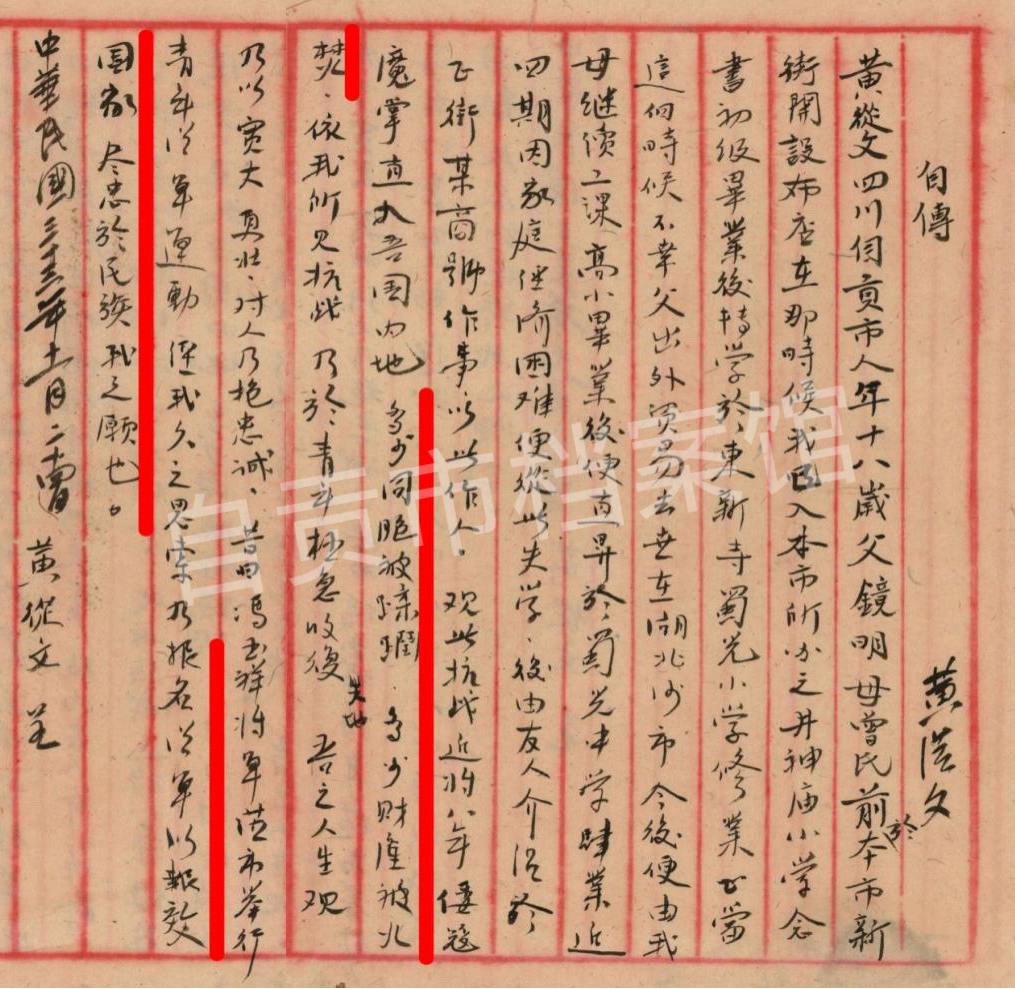 自傳
黃從文
黃從文四川自貢市人年十八歲父鏡明母曾氏前於本市新
街開設布店在那時候我已入本市所办之井神庙小学念
書初级畢業後轉学於東新寺蜀光小学修業正當
這個時候不幸父出外貿易去世在湖北沙市今後便由我
母継续上課高小畢業後便直昇於蜀光中学肄業近
四期因家庭经济困难便從此失学.後由友人介绍於
正街某商號作事.以此作人。观此抗战近将八年倭寇
魔掌直入吾国内地多少同胞被蹂躏.多少財産被火
焚.依我所见抗战乃於青年极急收復失地吾之人生观
乃以宽大真壮.对人乃抱忠诚.昔日冯玉祥将军蒞市举行
青年从军運動经我久之思索乃報名从军以報效
国家尽忠於民族我之願也。
中華民國三十三年十一月二十四日 黄從文 呈
自贡市档案馆